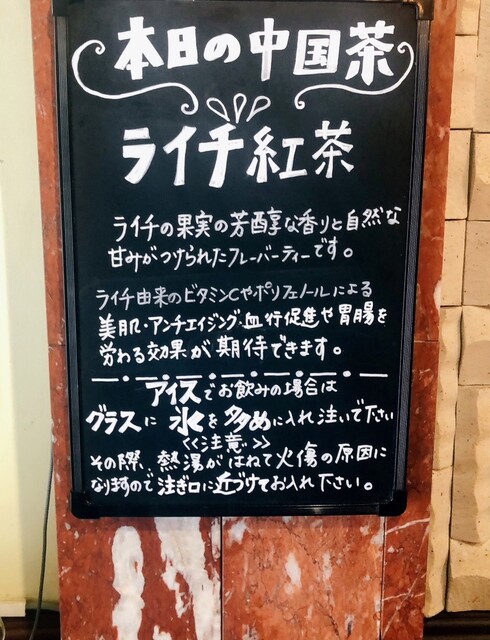 本日の中国茶
ライチ紅茶
ライチの果実の芳醇な香りと自然な
甘みがつけられたフレーバーティーです。
ライチ由来のビタミンCやポリフェノールによる
美肌・アンチエイジング・血行促進や胃腸を
労わる効果が期待できます。
アイスでお飲みの場合は
グラスに氷を多めに入れ注いで下さい
<<注意>>
その際、熱湯がはねて火傷の原因に
なりますので注ぎ口に近づけてお入れ下さい。